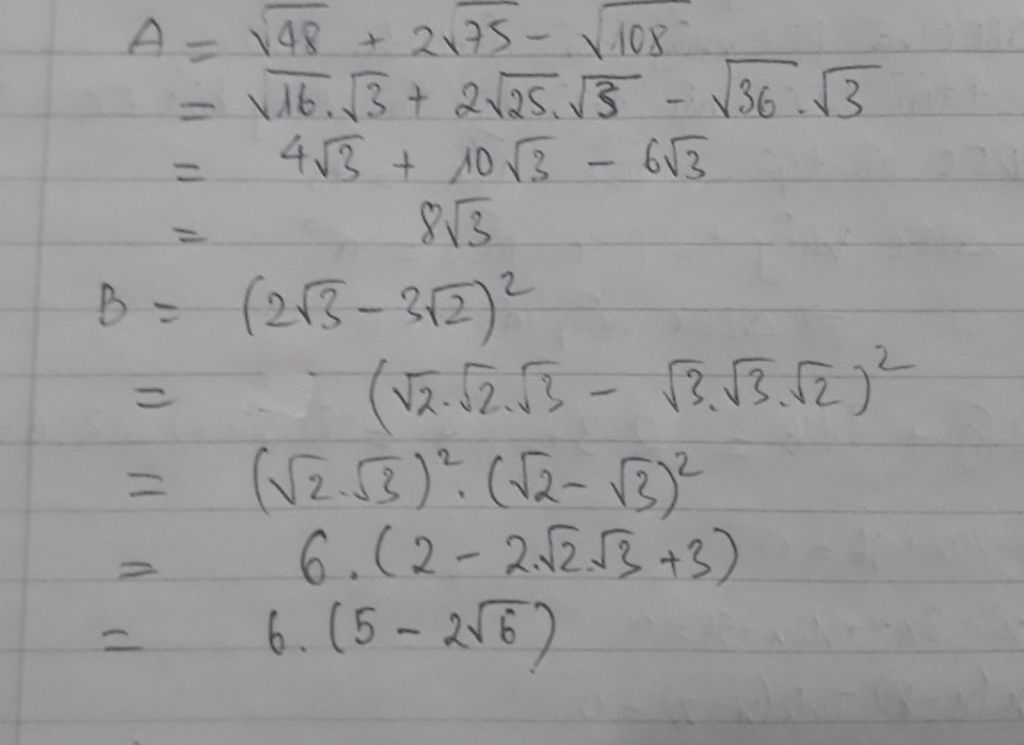 A = √48 + 2√75 - √108
= √16.√3 + 2√25.√3 - √36.√3
= 4√3 + 10√3 - 6√3
= 8√3
B = (2√3 - 3√2)²
= (√2.√2.√3 - √3.√3.√2)²
= (√2.√3)².(√2 - √3)²
= 6.(2 - 2.√2.√3 + 3)
= 6.(5 - 2√6)